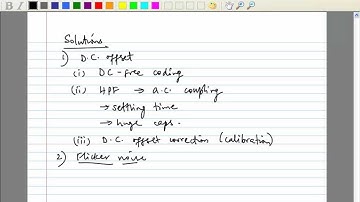 Solutions
1) D.C. offset
(i) DC-free coding
(ii) HPF → a.c. coupling
→ settling time
→ huge caps.
(iii) D.C. offset correction (calibration)
2) Flicker noise